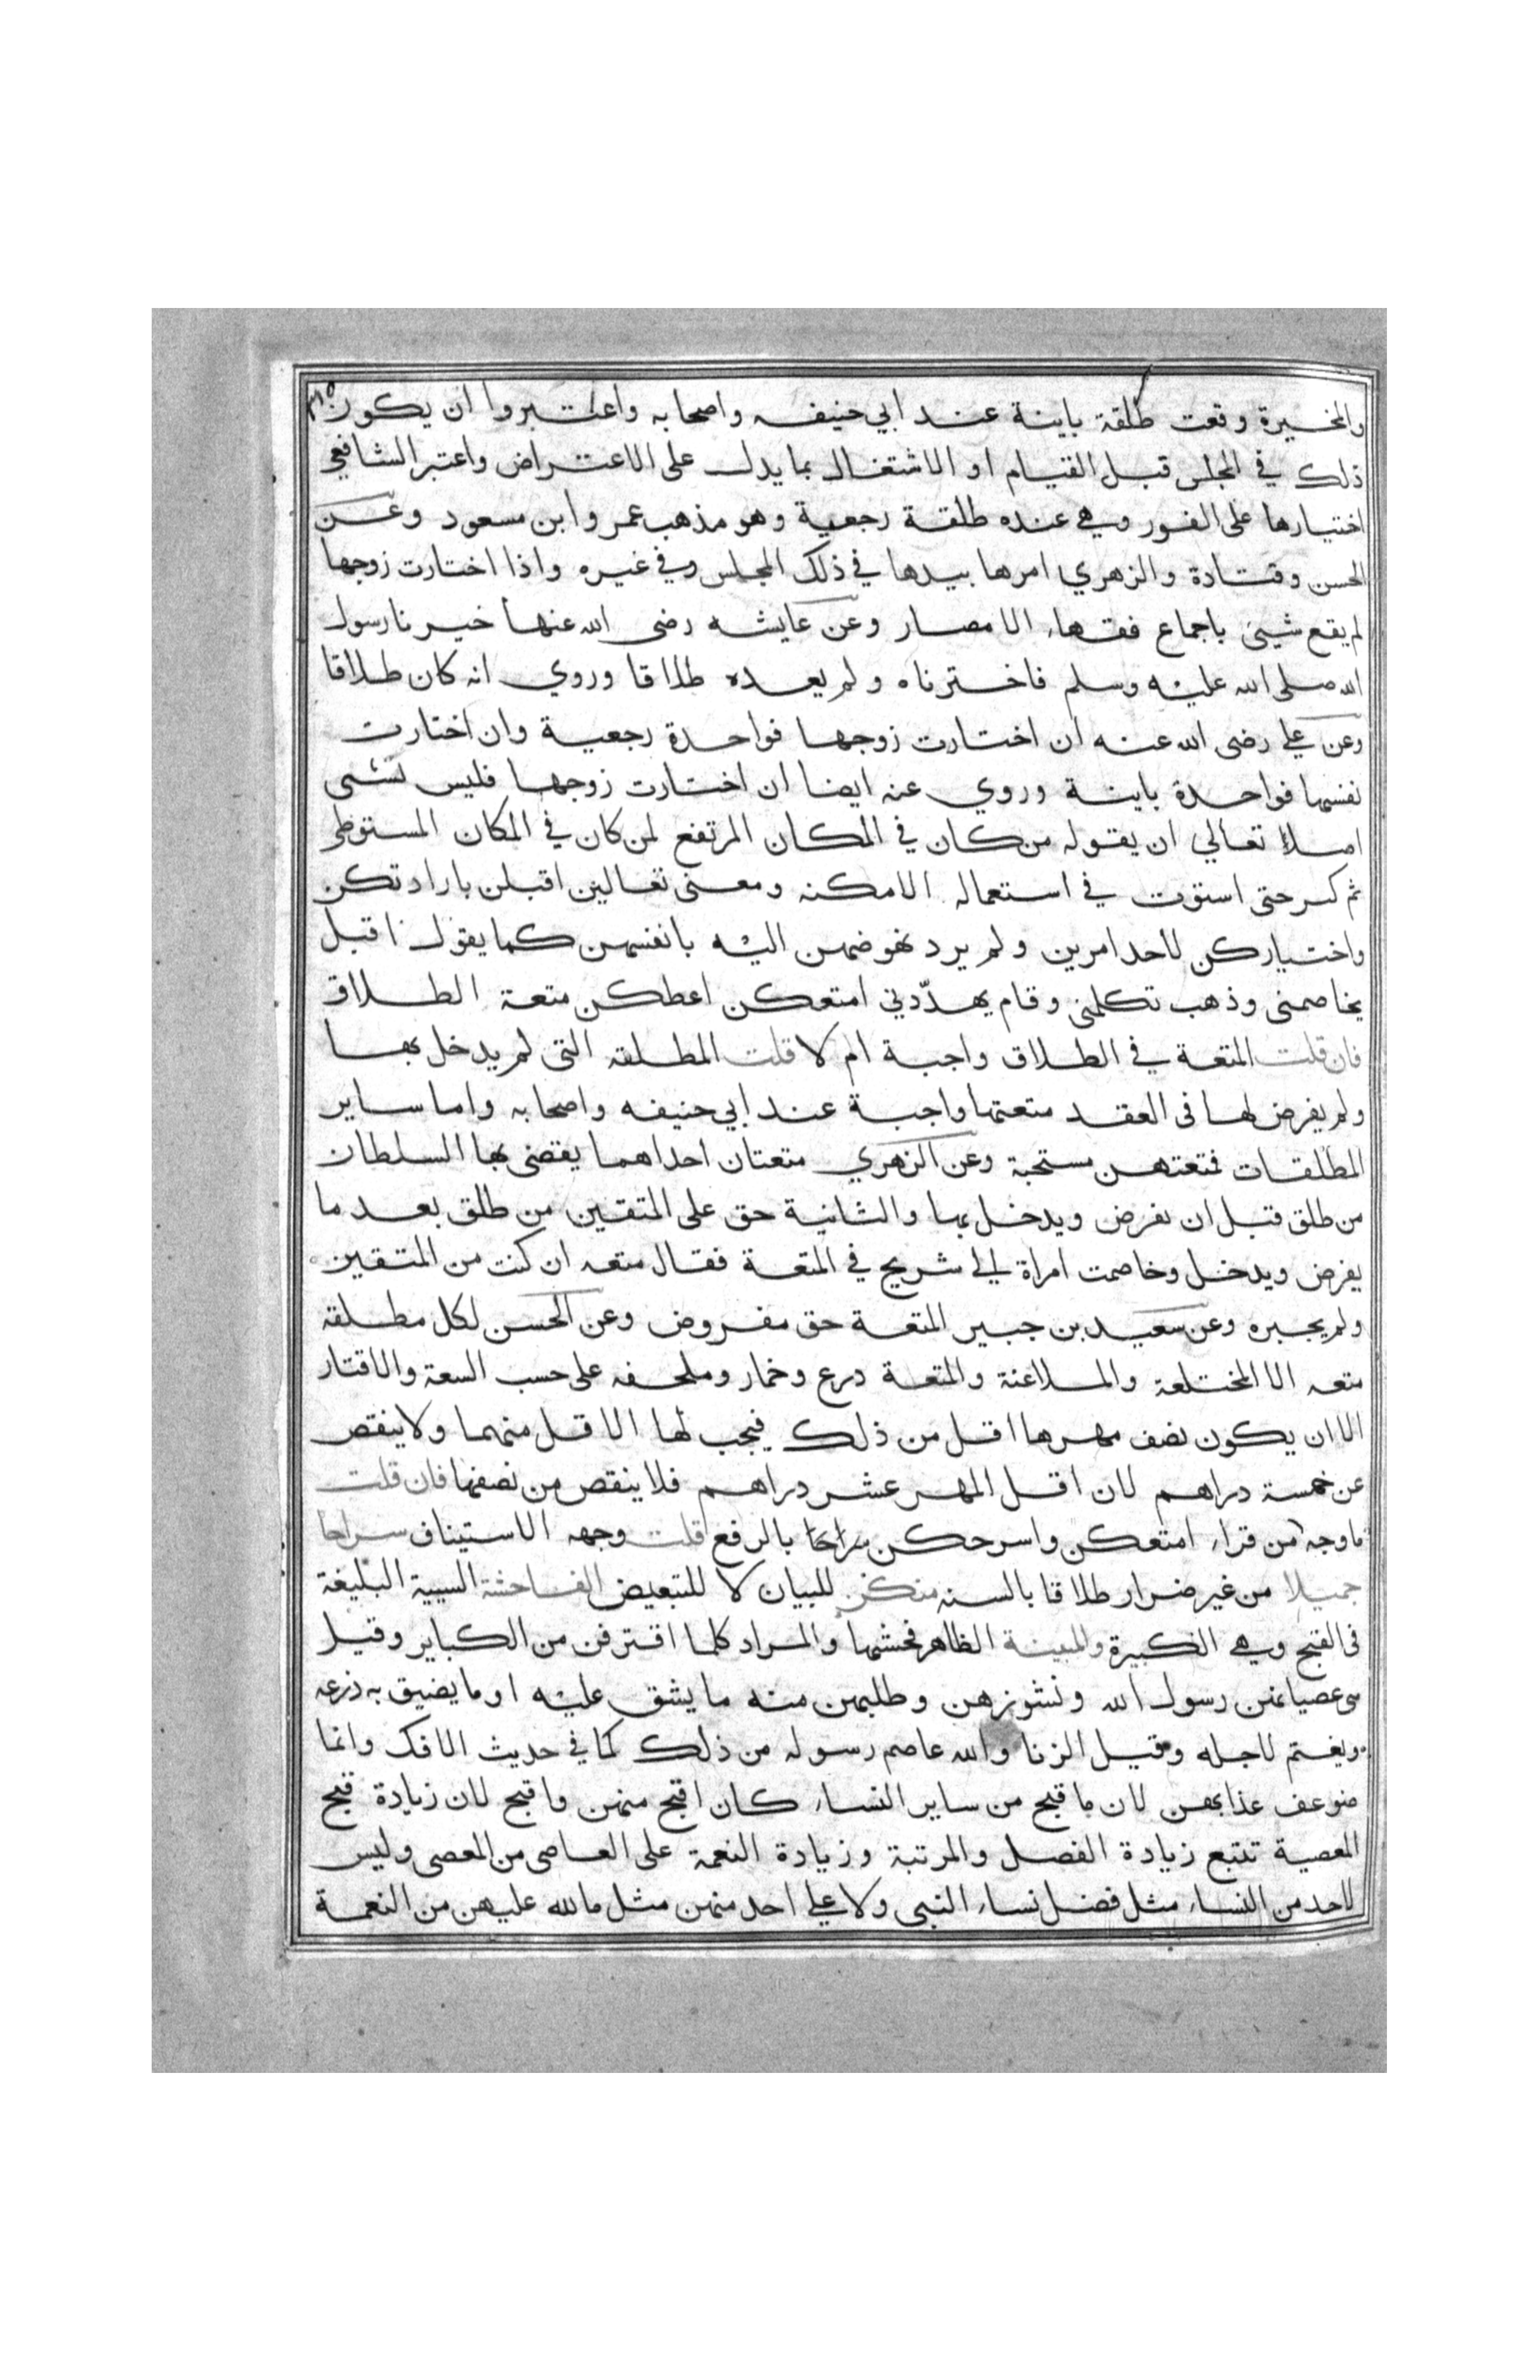 والمخيرة وقعت طلقة باينة عند ابي حنيفه واصحابه واعتبروا ان يكون ٣١٥
ذلك في المجلس قبل القيام او الاشتغال بما يدل على الاعتراض واعتبر الشافعي
اختيارها على الفور وهي عنده طلقة رجعية وهو مذهب عمر وابن مسعود وعن
الحسن وقتادة والزهري امرها بيدها في ذلك المجلس وفي غيره واذا اختارت زوجها
لم يقع شيئ باجماع فقهاء الامصار وعن عايشه رضى الله عنها خيرنا رسول
الله صلى الله عليه وسلم فاخترناه ولم يعده طلاقا وروي انه كان طلاقا
وعن علي رضى الله عنه ان اختارت زوجها فواحدة رجعية وان اختارت
نفسها فواحدة باينة وروي عنه ايضا ان اختارت زوجها فليس بشىء
اصلا تعالي ان يقوله من كان في المكان المرتفع لمن كان في المكان المستوطى
ثم كسر حتى استوت في استعماله الامكنه ومعنى تعالين اقبلن بارادتكن
واختياركن لاحد امرين ولم يرد نهوضهن اليه بانفسهن كما يقول اقبل
يخاصمنى وذهب تكلمنى وقام يهددني امتعكن اعطكن متعة الطلاق
فان قلت المتعة في الطلاق واجبة ام لا قلت المطلقه التى لم يدخل بها
ولم يفرض لها فى العقد متعتها واجبة عند ابي حنيفه واصحابه واما ساير
المطلقات فمتعتهن مستحبة وعن الزهري متعتان احداهما يقضى بها السلطان
من طلق قبل ان يفرض ويدخل بها والثانية حق على المتقين من طلق بعد ما
يفرض ويدخل وخاصمت امراة الي شريح في المتعة فقال متعه ان كنت من المتقين
ولم يجبره وعن سعيد بن جبير المتعة حق مفروض وعن الحسن لكل مطلقة
متعه الا المختلعة والملاعنة والمتعة درع وخمار وملحفه على حسب السعة والاقتار
الا ان يكون نصف مهرها اقل من ذلك فيجب لها الاقل منهما ولا ينقص
عن خمسة دراهم لان اقل المهر عشر دراهم فلا ينقص من نصفها فان قلت
ما وجه من قراء امتعكن واسرحكن سراحا بالرفع قلت وجهه الاستيناف سراحا
جميلا من غير ضرار طلاقا بالسنه منكن للبيان لا للتبعيض الفاحشة السيية البليغة
فى القبح وهي الكبيرة والمبينة الظاهر فحشها والمراد كلما اقترفن من الكباير وقيل
هي عصيانهن رسول الله ونشوزهن وطلبهن منه ما يشق عليه او ما يضيق به ذرعه
ويغتم لاجله وقيل الزنا والله عاصم رسوله من ذلك كما في حديث الافك وانما
ضوعف عذابهن لان ما قبح من ساير النساء كان اقبح منهن واقبح لان زيادة قبح
المعصية تتبع زيادة الفضل والمرتبة وزيادة النعمة على العاصى من المعصى وليس
لاحد من النساء مثل فضل نساء النبي ولا علي احد منهن مثل ما لله عليهن من النعمة